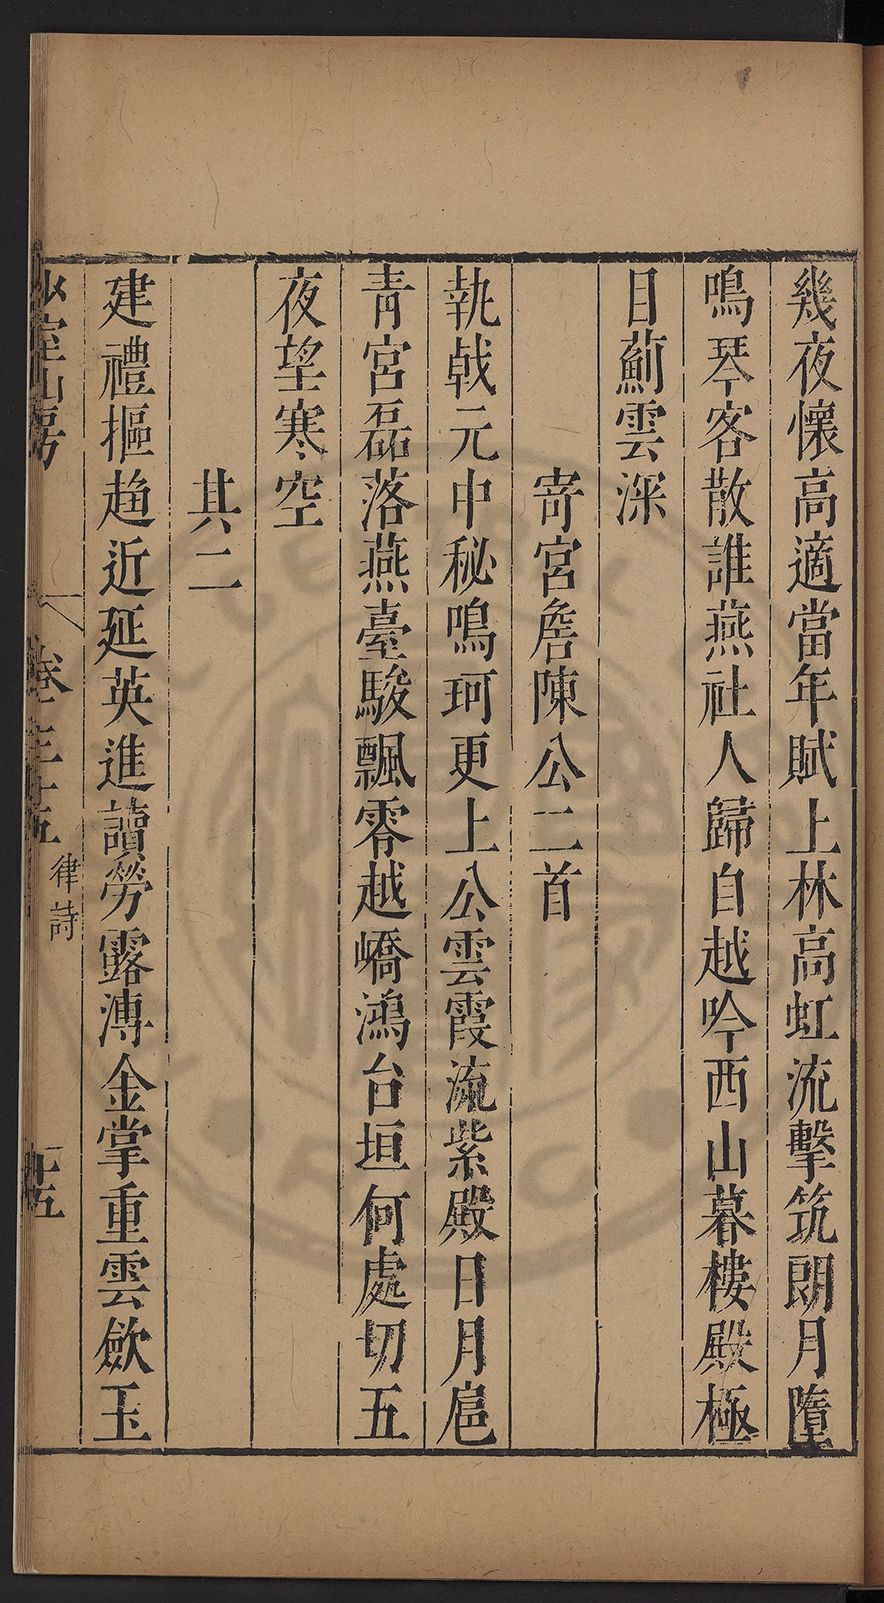 幾夜懷高適當年賦上林高虹流擊筑朗月墮
鳴琴客散誰燕社人歸自越吟西山暮樓殿極
目薊雲深
寄宮詹陳公二首
執戟元中秘鳴珂更上公雲霞流紫殿日月扈
青宮磊落燕臺駿飄零越嶠鴻台垣何處切五
夜望寒空
其二
建禮摳趨近延英進讀勞露溥金掌重雲歛玉
少室山房
卷三十五
律詩
十五